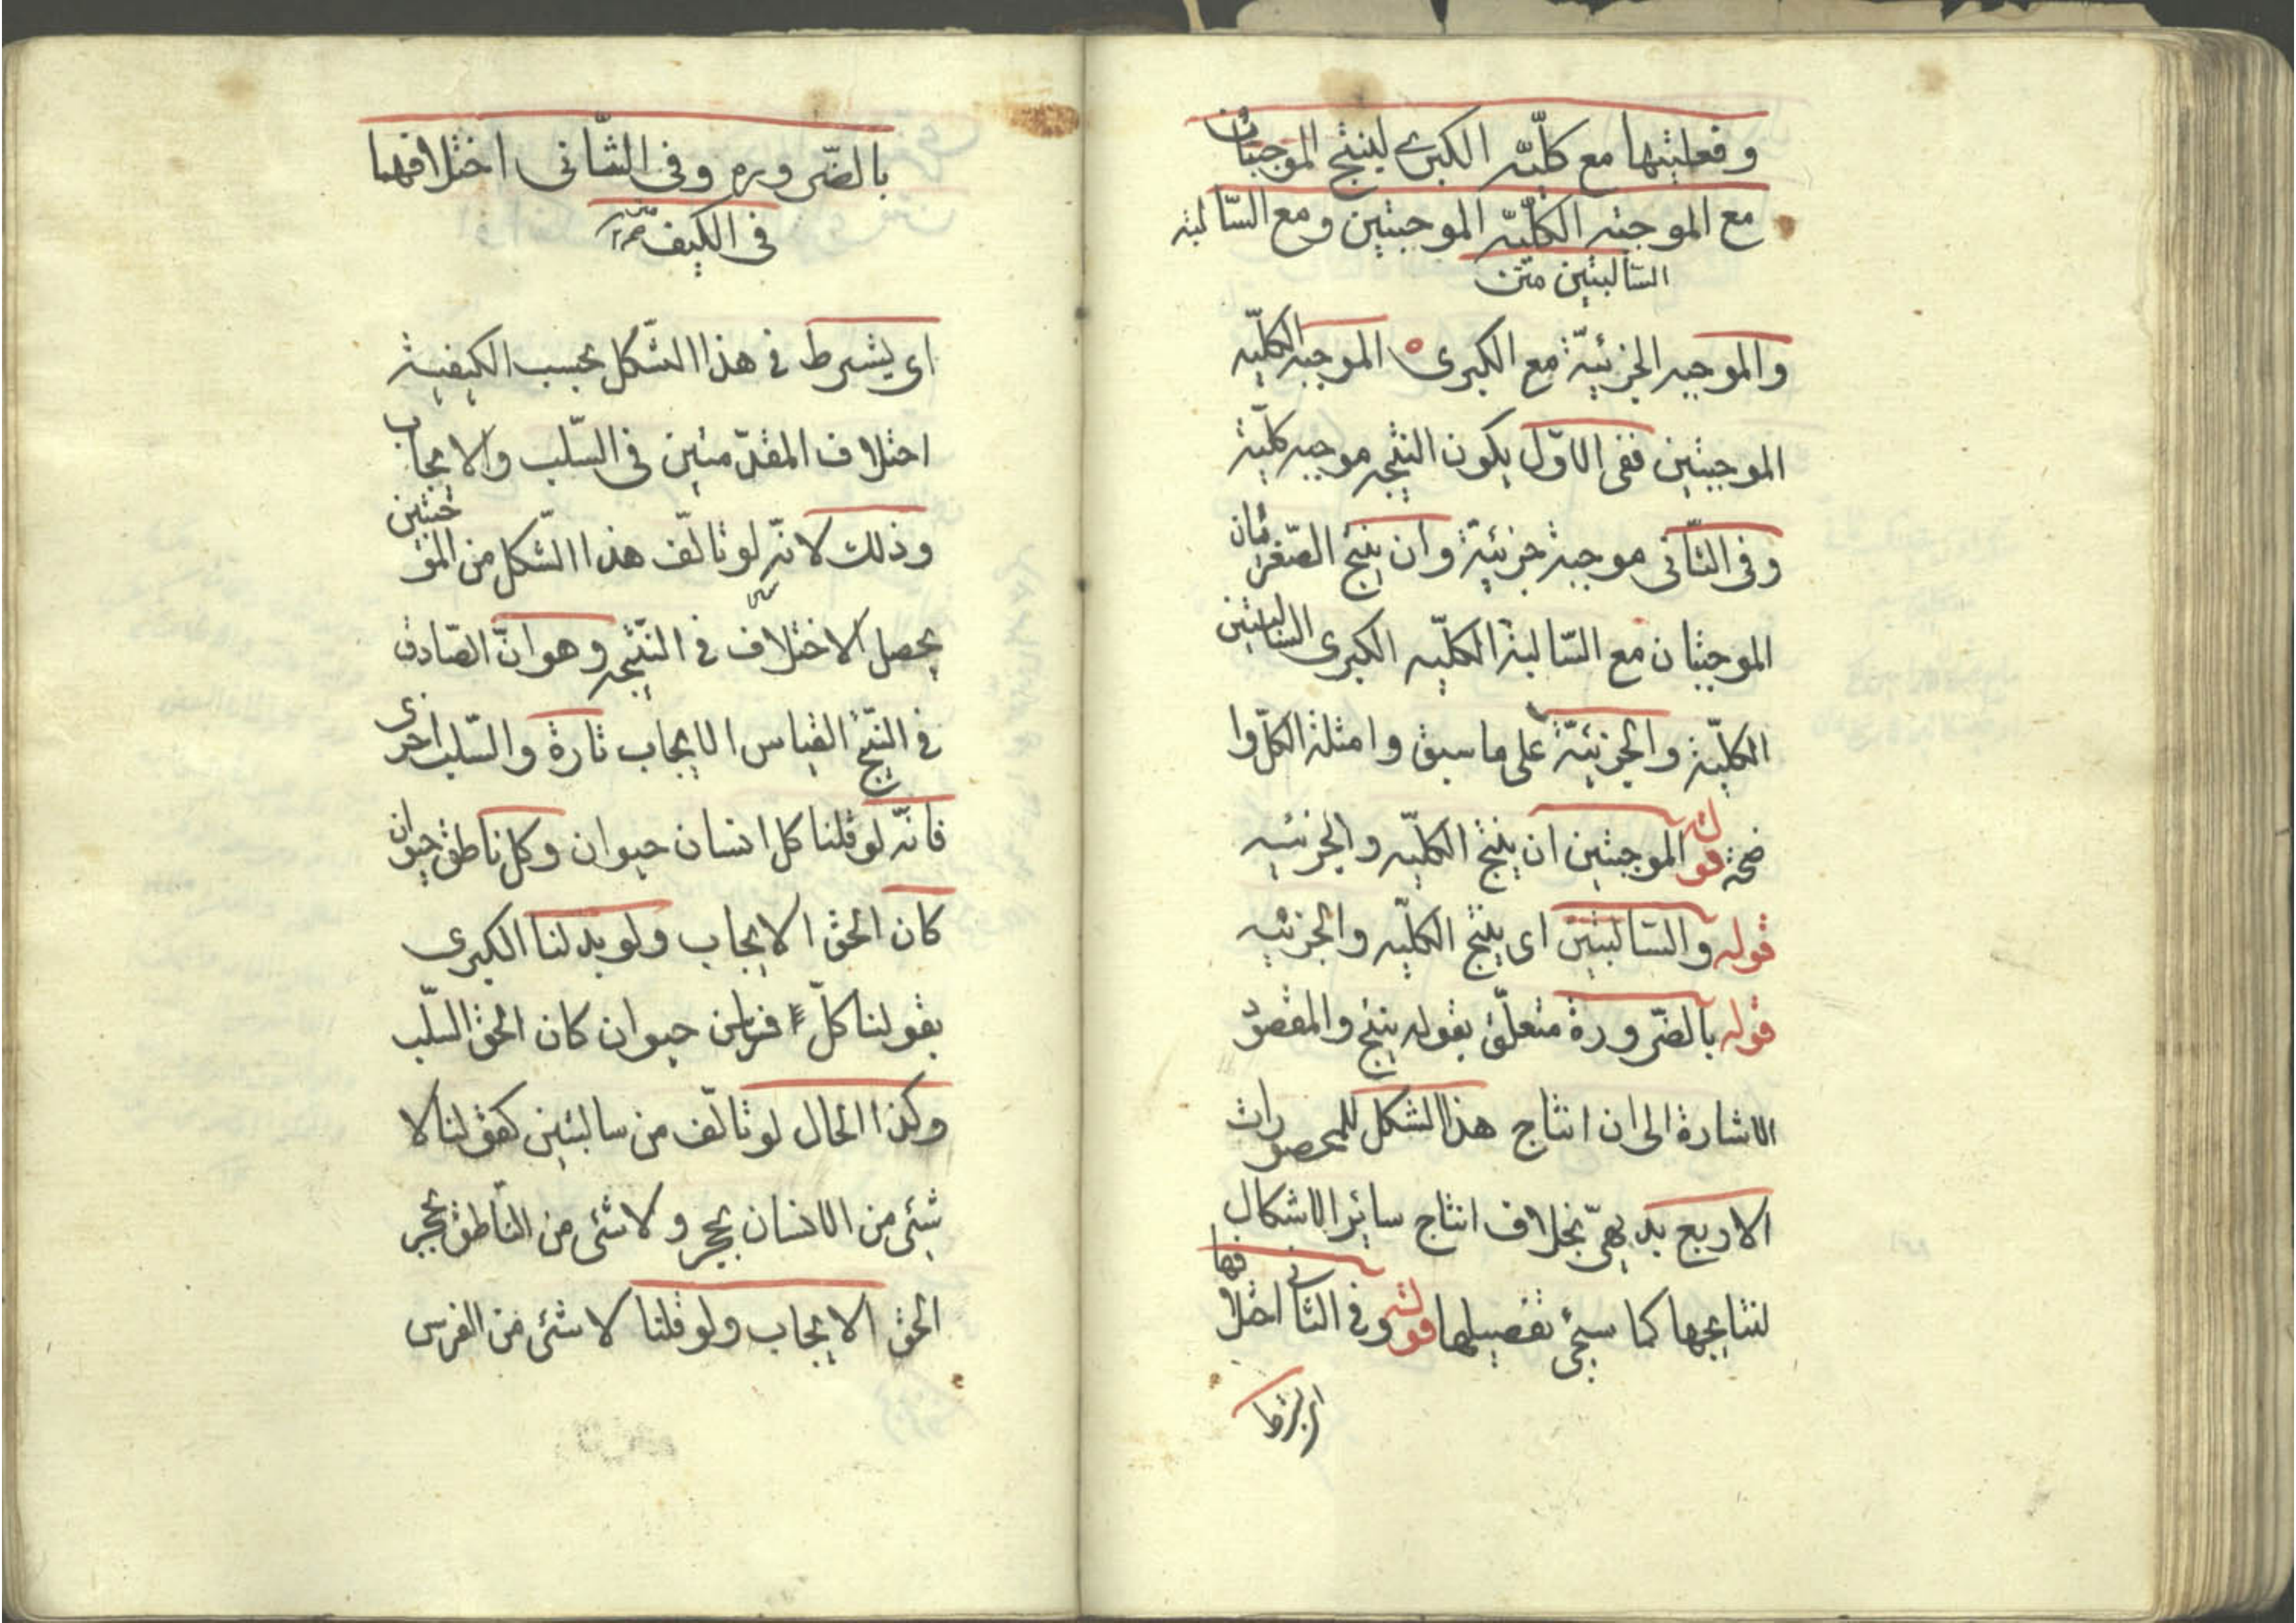 وفعليتها مع كلّيّة الكبرى لينتج الموجبتان
مع الموجبة الكلّيّة الموجبتين ومع السّالبة
السّالبتين متن
والموجبه الجزئيّة مع الكبرى الموجبه الكلّيه
الموجبتين ففى الاوّل يكون النتيجه موجبه كلّية
وفى الثّانى موجبة جزئية وان ينتج الصّغريان
الموجبتان مع السّالبة الكلّيه الكبرى السّالبتين
الكلّية والجزئيّة على ما سبق وامثلة الكلّ وا
ضحة قوله الموجبتين ان ينتج الكلّيه والجزئيه
قوله والسّالبتين اى ينتج الكلّيه والجزئيه
قوله بالضّرورة متعلّق بقوله ينتج والمقصود
الاشارة الى ان انتاج هذا الشكل للمحصورات
الاربع بديهىّ بخلاف انتاج سائر الاشكال
لنتايجها كما سيجئ تفصيلها قوله وفى الثانى اختلافهما
اى يشترط
بالضّروره وفى الثّانى اختلافهما
فى الكيف متن
اى يشرط فى هذا الشّكل بحسب الكيفية
اختلاف المقدّمتين فى السّلب والايجاب
وذلك لانّه لو تالّف هذا الشّكل من الموجبتين
يحصل الاختلاف فى النّتيجه وهو انّ الصّادق
فى النّتيج القياس الايجاب تارة والسّلب اخرى
فانّه لو قلنا كل انسان حيوان وكل ناطق حيوان
كان الحق الايجاب ولو بدلنا الكبرى
بقولنا كلّ فرس حيوان كان الحق السّلب
وكذا الحال لو تالّف من سالبتين كقولنا لا
شئ من الانسان بحجر ولا شئ من النّاطق بحجر
الحق الايجاب ولو قلنا لا شئ من الفرس